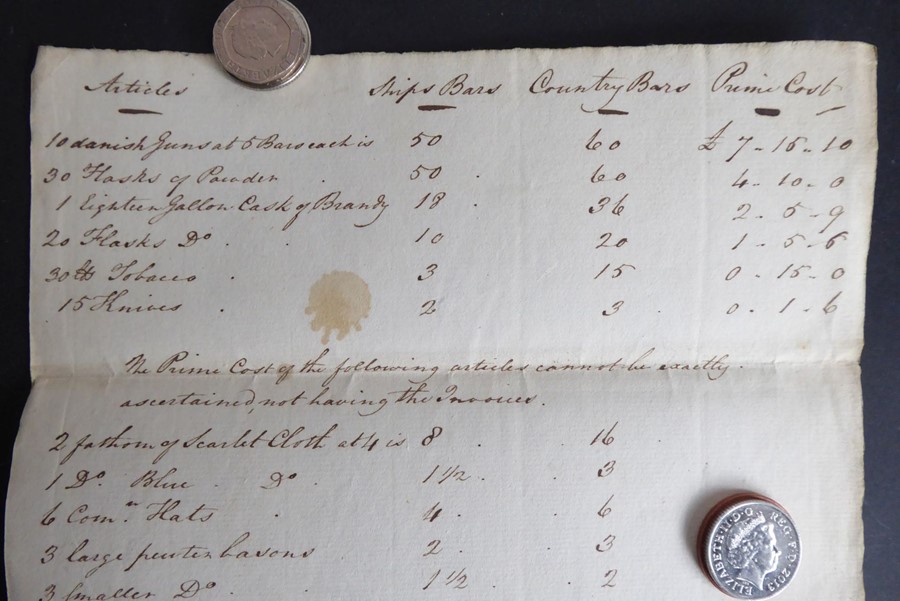 Articles Ships Bars Country Bars Prime Cost
10 danish Guns at 5 Bars each is 50 60 £ 7 - 15 - 10
30 Flasks of Powder . 50 . 60 4 - 10 - 0
1 Eighteen Gallon Cask of Brandy 18 . 36 2 - 5 - 9
20 Flasks Do . . 10 20 1 - 5 - 6
30 lb Tobacco . 3 15 0 - 15 - 0
15 Knives . 2 3 . 0 - 1 - 6
The Prime Cost of the following articles cannot be exactly
ascertained, not having the Invoices.
2 fathom of Scarlet Cloth at 4 is 8 . . 16 .
1 Do. Blue . Do . 1 1/2 . . 3
6 Comn. Hats . 4 . . 6
3 large pewter basons . 2 . . 3
3 Smaller Do . 1 1/2 . . 2
ELIZABETH·II·D·G REG·F·D·2013